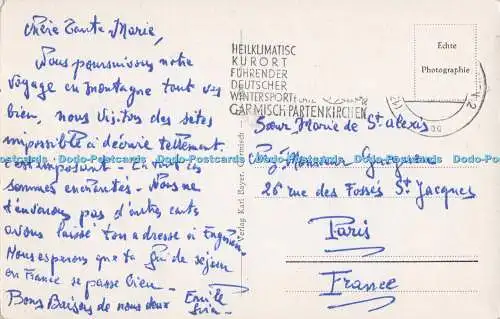 Chère Tante Marie,
Nous poursuivons notre
voyage en montagne tout va
bien, nous visitons des sites
impossible à décrire tellement
c'est imposant - En tout
sommes enchantés - Nous ne
t'envoyons pas d'autres cartes
avons laissé ton adresse à
Nous espérons que ta fin de séjour
en France se passe bien -
Bons Baisers de nous deux Emile
HEILKLIMATISC
KURORT
FÜHRENDER
DEUTSCHER
WINTERSPORT
GARMISCH-PARTENKIRCHEN
Echte
Photographie
Verlag Karl Bayer, Garmisch
Sœur Marie de St Alexis
Monsieur
26 rue des Fossés St Jacques
Paris
France
Dodo-Postcards Dodo-Postcards Dodo-Postcards Dodo-Postcards Dodo-Postcards